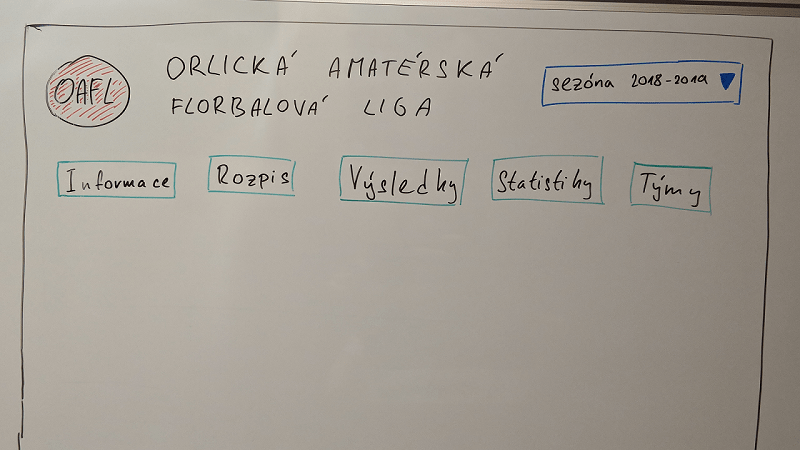 OAFL
ORLICKÁ AMATÉRSKÁ
FLORBALOVÁ LIGA
sezóna 2018-2019
Informace
Rozpis
Výsledky
Statistiky
Týmy